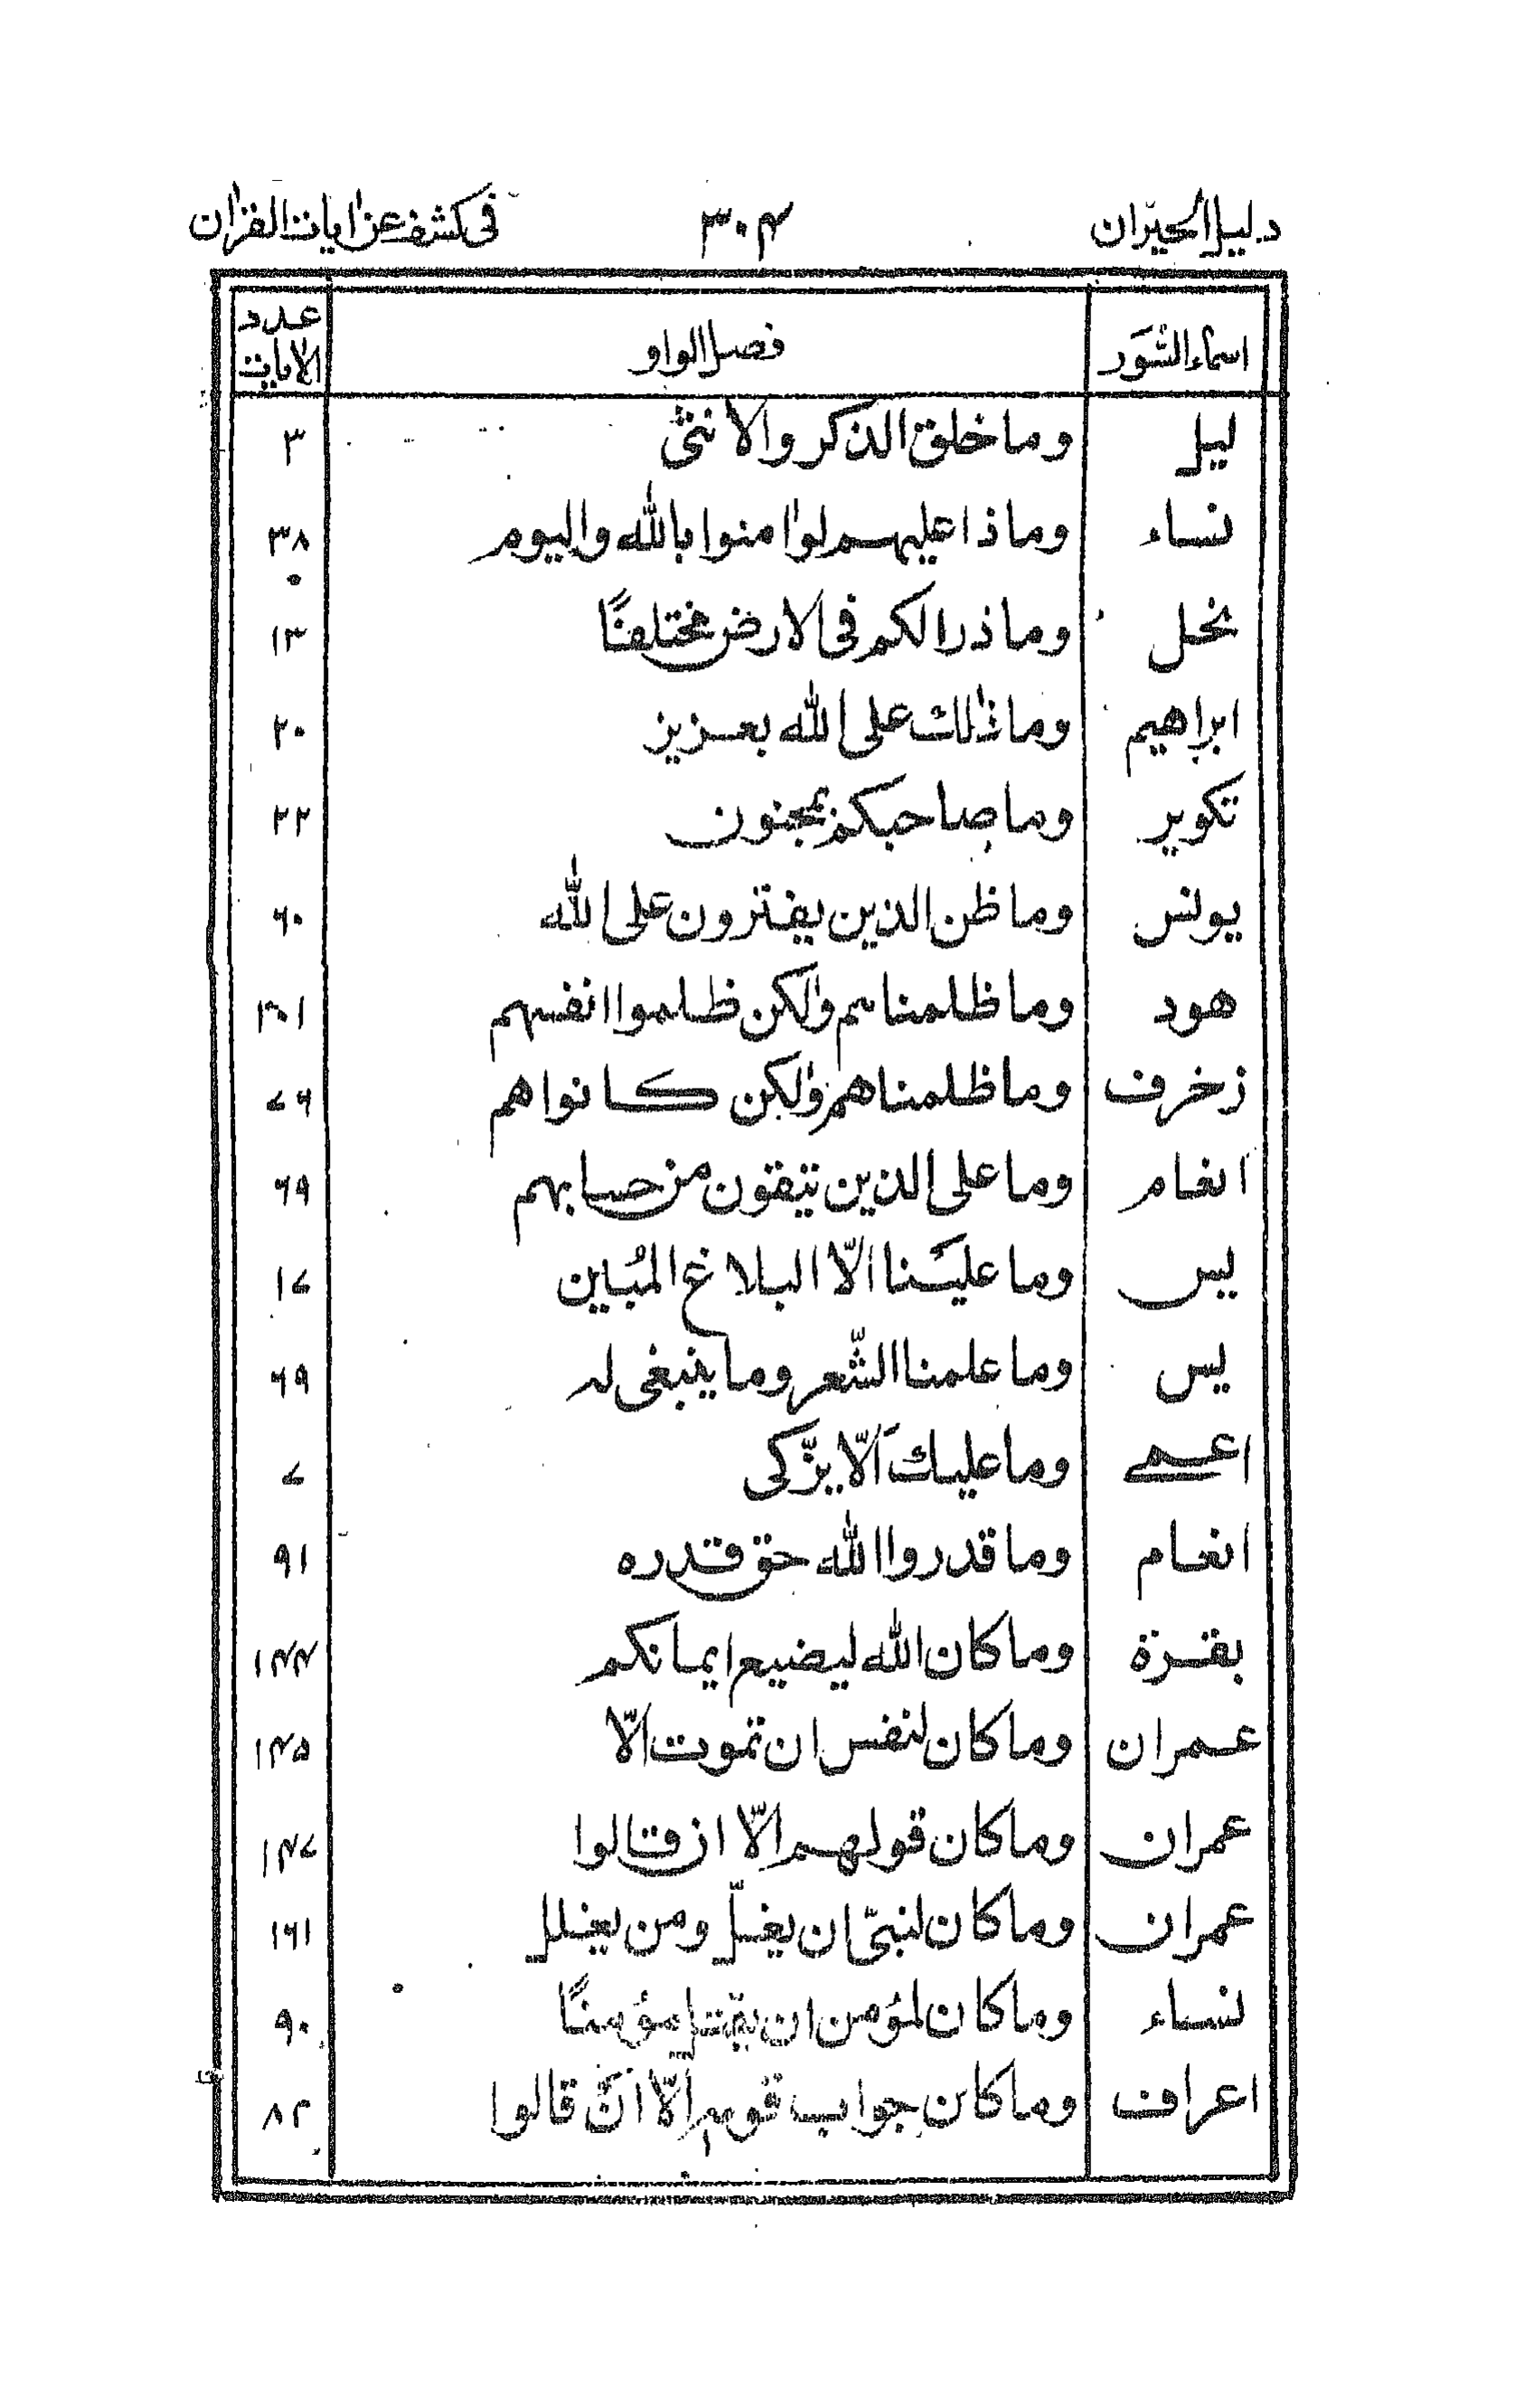 دليل الحيران ٣٠۴ فى كشف عن اٰيات القراٰن
اسماء السّوَر فصل الواو عدد الاٰيات
ليل وما خلق الذكر والانثىٰ ٣
نساء وماذا عليهم لواٰمنوا باللّٰه واليوم ٣٨
نحل وما ذرا لكم فى الارض مختلفًا ١٣
ابراهيم وما ذٰلك على اللّٰه بعزيز ٢٠
تكوير وما صاحبكم بمجنون ٢٢
يونس وما ظن الذين يفترون على اللّٰه ۶٠
هود وما ظلمناهم ولٰكن ظلموا انفسهم ١٠١
زخرف وما ظلمناهم ولٰكن كانوا هم ٧۶
انعام وما على الذين يتقون من حسابهم ۶٩
يس وما عليَنا الّا البلاغ المُبين ١٧
يس وما علمنا الشّعر وما ينبغى له ۶٩
اعمے وما عليكَ اَلّا يزّكى ٧
انعام وما قدروا اللّٰه حق قدره ٩١
بقرة وما كان اللّٰه ليضيع ايمانكم ١۴۳
عمران وما كان لنفس ان تموت الّا ١۴۵
عمران وما كان قولهم الّا ان قالوا ١۴٧
عمران وما كان لنبىّ ان يغلّ ومن يغلل ١۶١
نساء وما كان لمؤمن ان يقتل مؤمنًا ٩٠
اعراف وما كان جواب قومه الّا انْ قالوا ٨٢